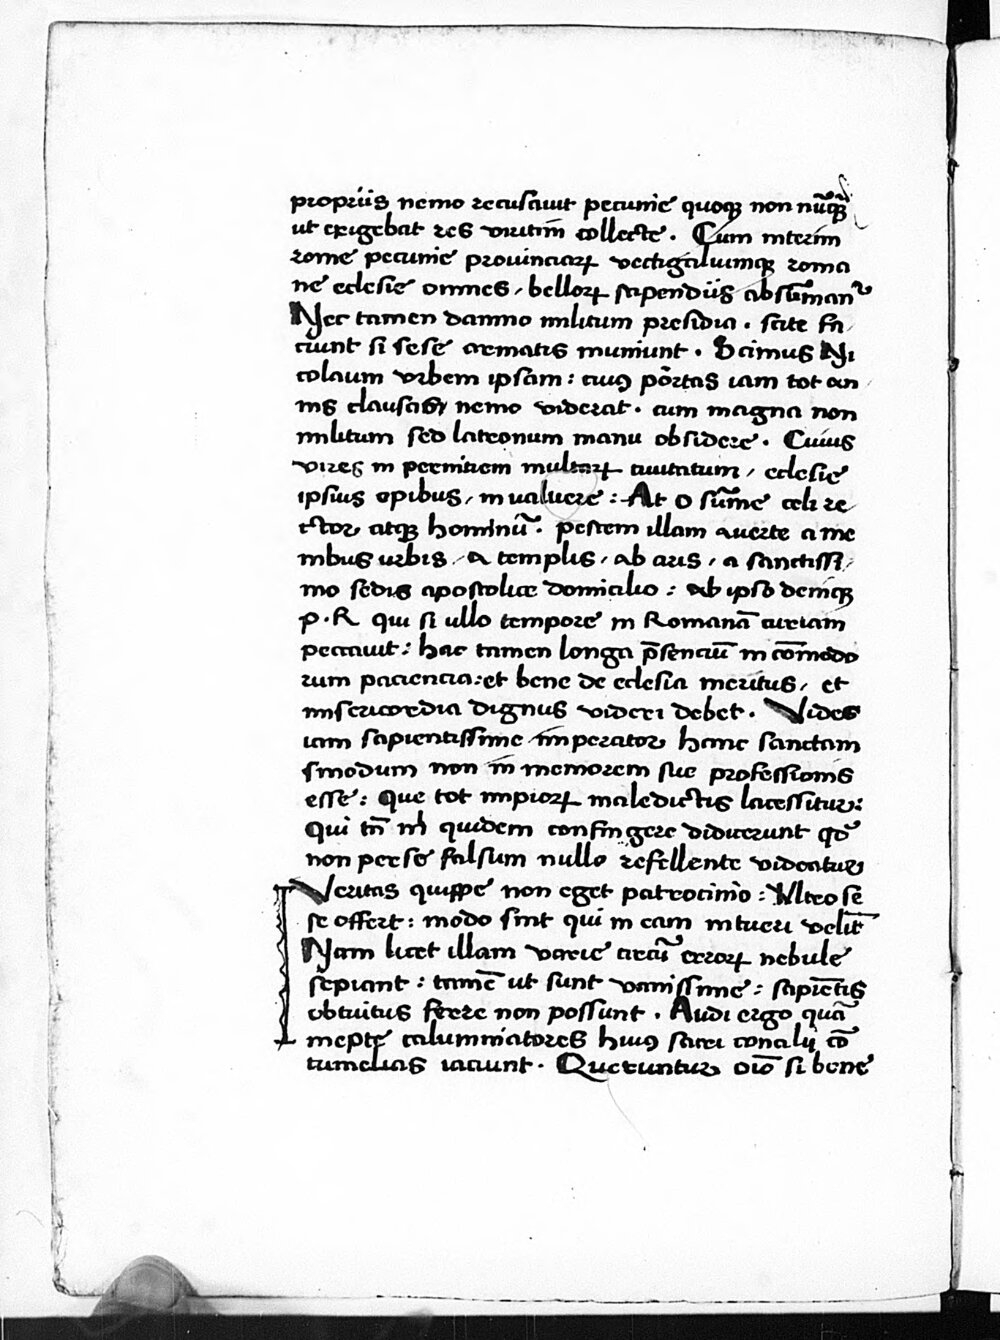 propriis nemo recusavit pecunie quoqz non nūqz
ut exigebat res viritim collecte. Cum interim
rome pecunie provinciarꝝ vectigaliumqz roma
ne eclesie omnes, bellorꝝ stipendiis absūman
Nec tamen damno militum presidia. scite fa/
ciunt si sese crematis muniunt. Scimus Ni
colaum vrbem ipsam: cuiꝰ portas iam tot an
nis clausas nemo viderat. cum magna non
militum sed latronum manu obsidere. Cuius
vires in perniciem multarꝝ civitatum, eclesie
ipsius opibus, invaluere: At o sūme celi re
ctor atqz hominū. pestem illam averte a me
nibus urbis, a templis, ab aris, a sanctissi/
mo sedis apostolice domicilio: ab ipso deniqz
p.R qui si ullo tempore in Romanā curiam
peccavit: hac tamen longa p̄senciū incōmodo
rum paciencia: et bene de eclesia meritus, et
misericordia dignus videri debet. Vides
iam sapientissime imperator hanc sanctam
sinodum non inmemorem sue professionis
esse: Que tot impiorꝝ maledictis lacessitur:
Qui tn̄ id quidem confingere didicerunt qđ
non per se falsum nullo refellente videatur
Veritas quippe non eget patrocinio: Vltro se
se offert: modo sint qui in eam intueri velīt
Nam licet illam varie circū errorꝝ nebule
sepiant: tamē ut sunt vanissime: sapiētis
obtuitus ferre non possunt. Audi ergo quā
inepte calumniatores huiꝰ sacri concilij cō
tumelias iaciunt. Queruntur oīo si bene